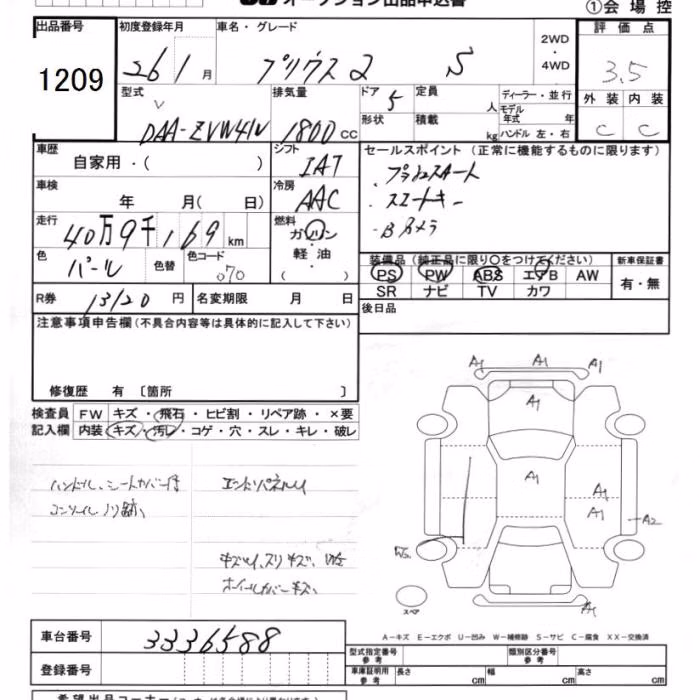 オークション出品申込書
①会場控
出品番号 初度登録年月 車名・グレード 2WD ・ 4WD 評価点
1209 26 1月 プリウスα S 3.5
型式 排気量 ドア 定員 人 ディーラー・並行 外装 内装
DAA-ZVW41W 1800cc 5 形状 積載 kg モデル年式 年 C C
ハンドル 左・右
車歴 自家用・( ) シフト IAT セールスポイント (正常に機能するものに限ります)
・プッシュスタート
車検 年 月( 日) 冷房 AAC ・スマートキー
・Bカメラ
走行 40万9千169km 燃料 ガソリン 軽油 ( )
装備品 (純正品に限り○をつけてください) 新車保証書
色 パール 色替 色コード 070 PS PW ABS エアB AW 有・無
SR ナビ TV カワ
R券 13120円 名変期限 月 日 後日品
注意事項申告欄(不具合内容等は具体的に記入して下さい)
修復歴 有 〔箇所 〕
検査員 FW キズ・飛石・ヒビ割・リペア跡・×要
記入欄 内装 キズ・汚レ・コゲ・穴・スレ・キレ・破レ
A1 A1 A1
A1
A1
A1
A1
A2
A1
スペア
A-キズ E-エクボ U-凹み W-補修跡 S-サビ C-腐食 XX-交換済
車台番号 3336588
登録番号
型式指定番号 参考 類別区分番号 参考
車庫証明用 参考 長さ cm 幅 cm 高さ cm